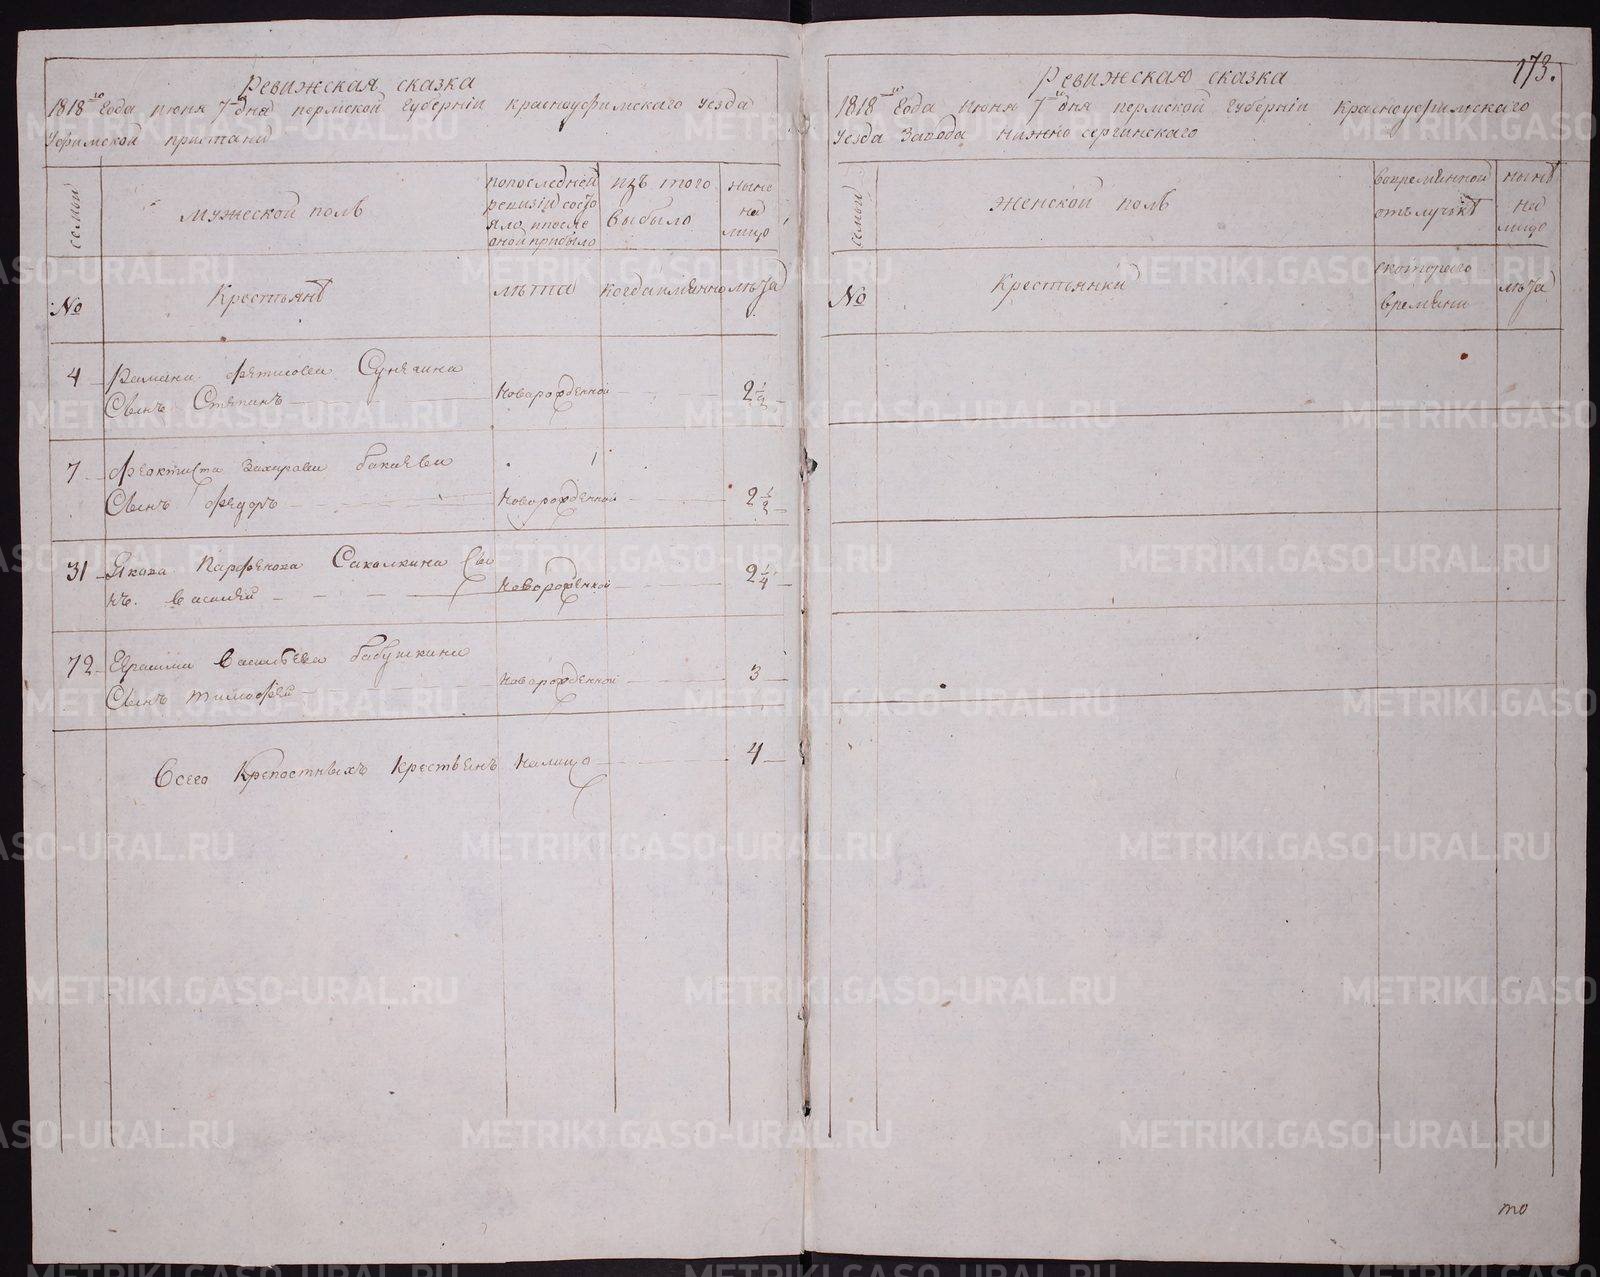 Ревижская сказка
1818го Года июня 7го дня пермской Губерніи красноуфимскаго уезда
Уфимской пристани
семьи
мужеской полъ
попоследней
ревизіи состо
яло ипосле
оной прибыло
изъ того
выбыло
ныне
на
лицо
№
Крестьянъ
лѣта
когда имянно
лѣта
4 Рамана Фетисова Сунегина
Сынъ Степанъ Новарожденной 2 1/2
7 Феоктиста Захарова бакаева
Сынъ Федоръ Новорожденной 2 1/2
31 Якова Парфенова Сакалкина Сы
нъ василей Новорожденной 2 1/4
72 Ефима васильева бабушкина
Сынъ тимофей Новорожденной 3
Всего Крепостныхъ Крестьянъ Налицо 4
173.
Ревижская сказка
1818го Года июня 7го дня пермской Губерніи Красноуфимскаго
Уезда Завода нижно сергинскаго
семьи
женской полъ
вовремянной
отълучкѣ
нынѣ
на
лицо
№
Крестьянки
скотораго
времяни
лѣта
то
METRIKI.GASO-URAL.RU